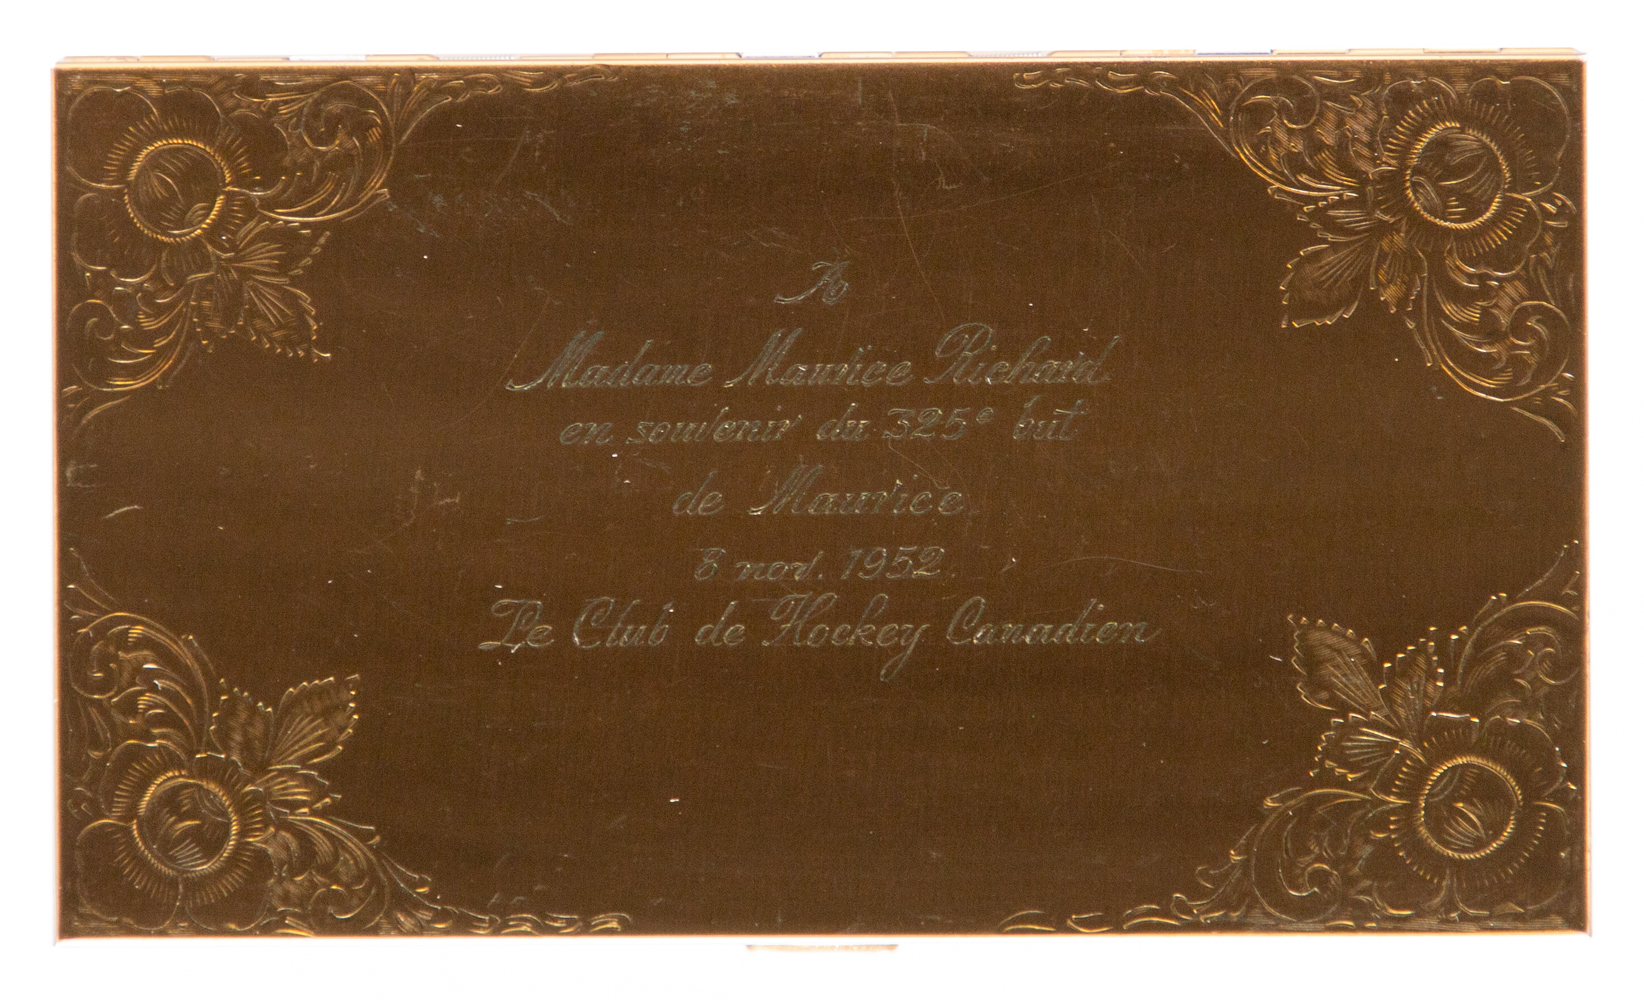 A
Madame Maurice Richard
en souvenir du 325e but
de Maurice
8 nov. 1952.
Le Club de Hockey Canadien